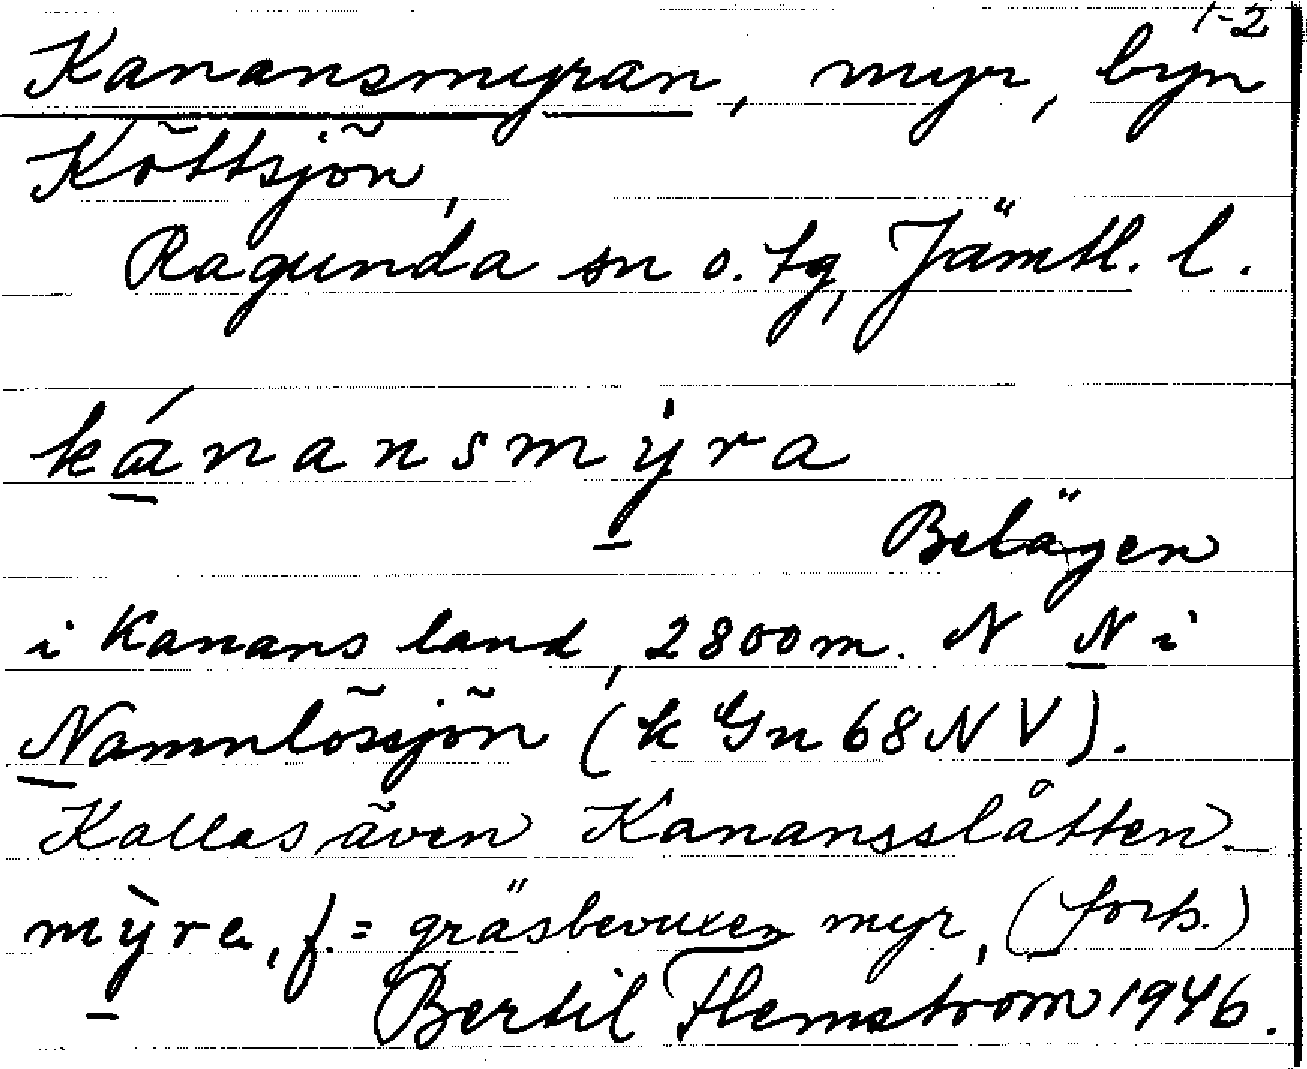 1-2
Kanansmyran, myr, byn
Köttsjön,
Ragunda sn o. tg, Jämtl. l.
kánansmỳra
Belägen
i Kanans land, 2800 m. N N i
Namnlösjön (k Gn 68 NV).
Kallas även Kanansslåtten.
mỳra, f. = gräsbevuxen myr, (forts.)
Bertil Flemström 1946.